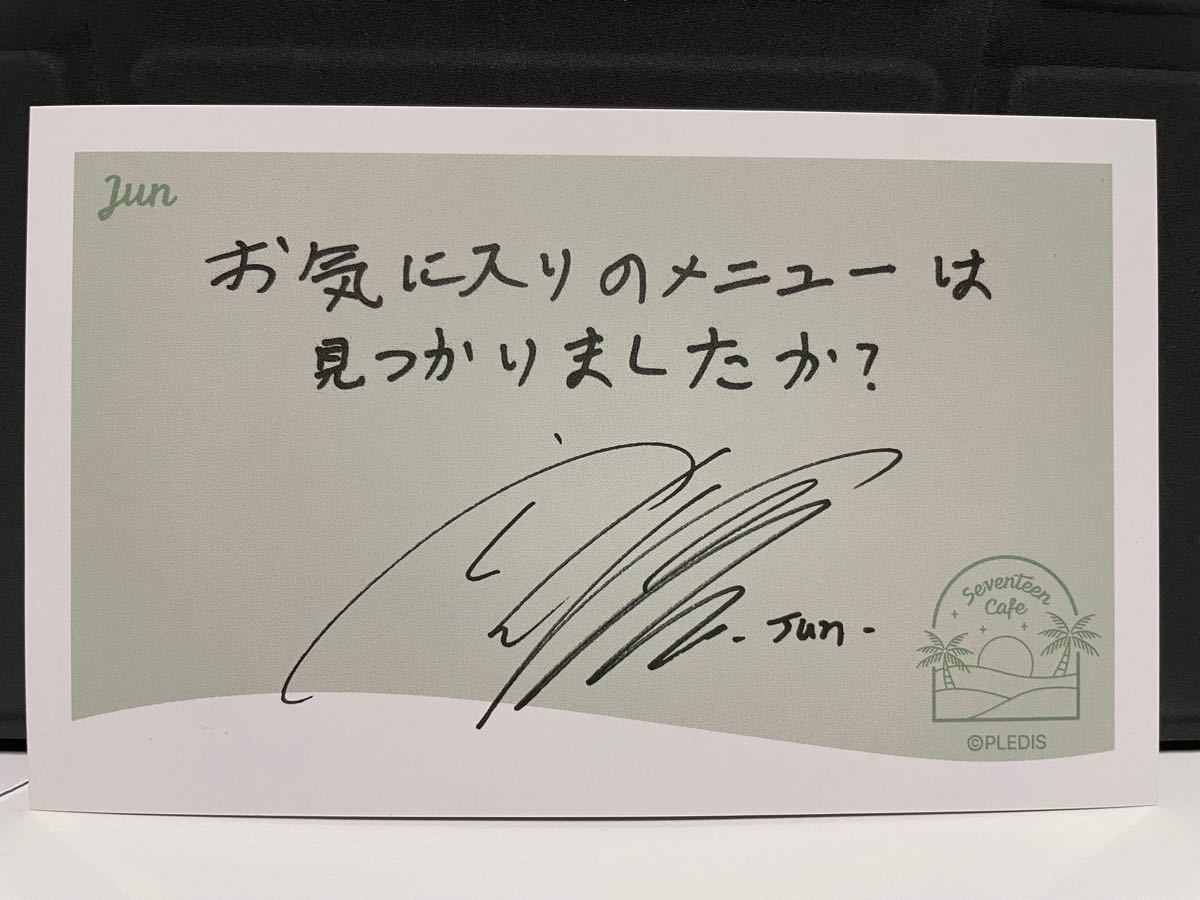 Jun
お気に入りのメニューは
見つかりましたか?
- Jun -
Seventeen
Cafe
©PLEDIS